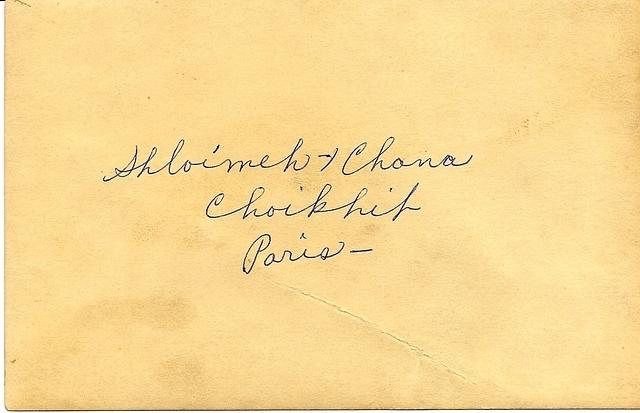 Shloimeh + Chana
Choikhit
Paris -